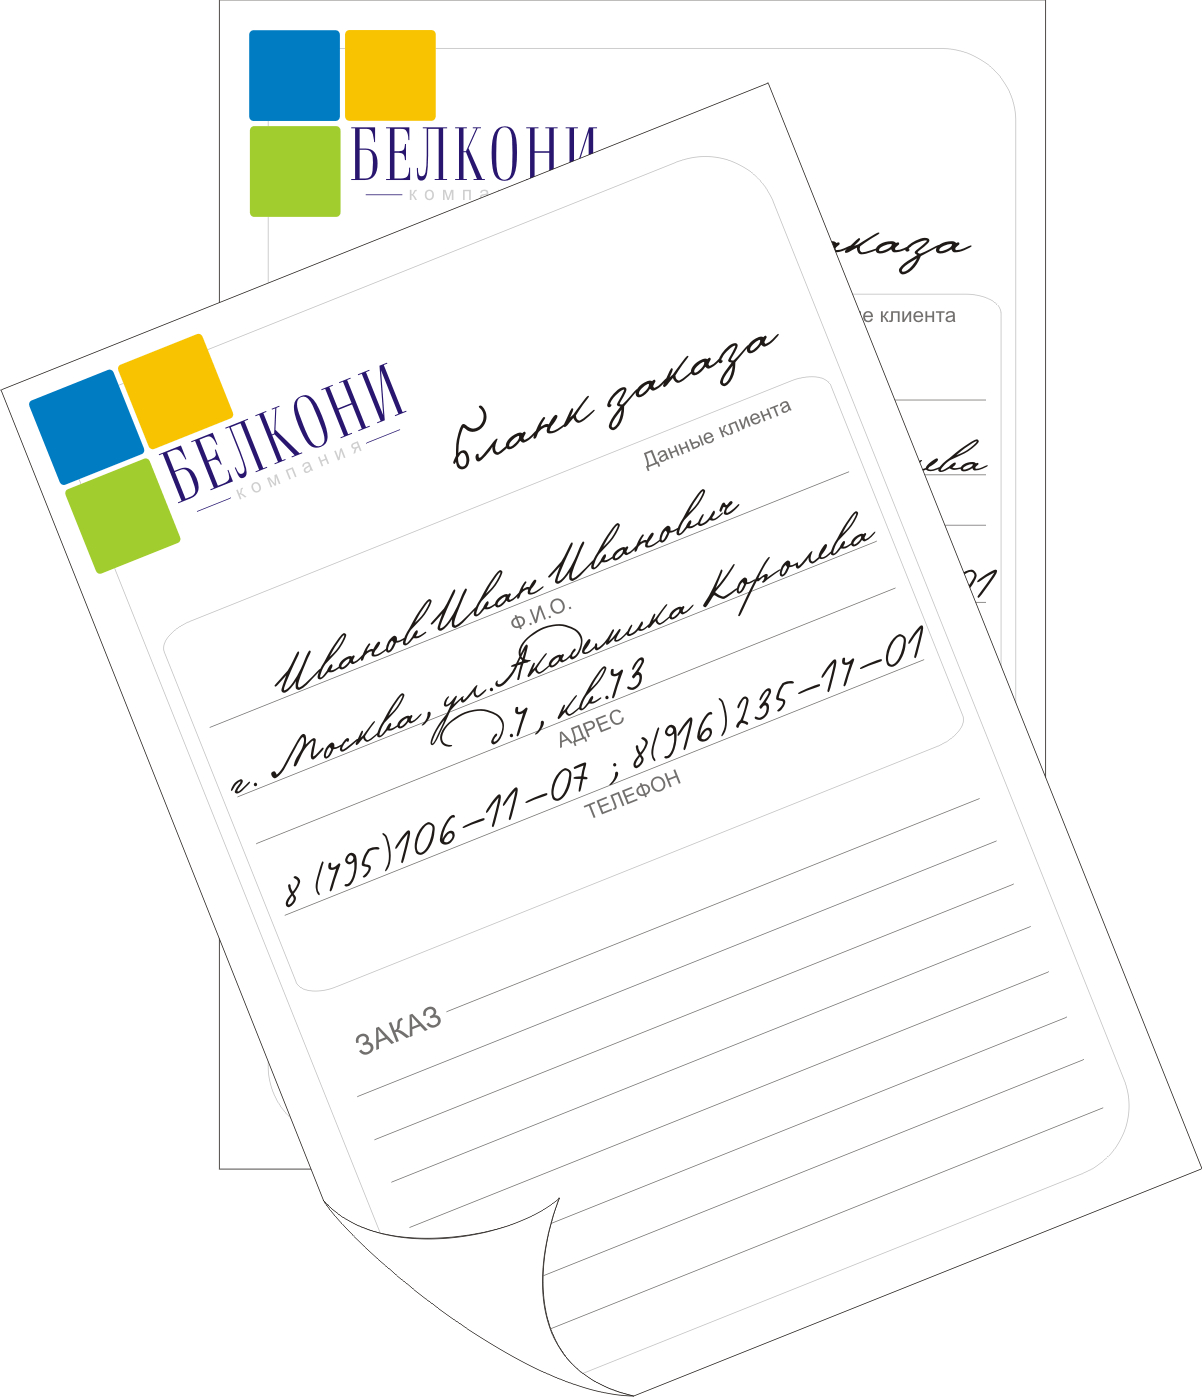 БЕЛКОНИ
компа
аказа
е клиента
ева
01
БЕЛКОНИ
компания
Бланк заказа
Данные клиента
Иванов Иван Иванович
Ф.И.О.
г. Москва, ул. Академика Королева
д.4, кв.43
АДРЕС
8 (495)106-11-07 ; 8(916)235-14-01
ТЕЛЕФОН
ЗАКАЗ